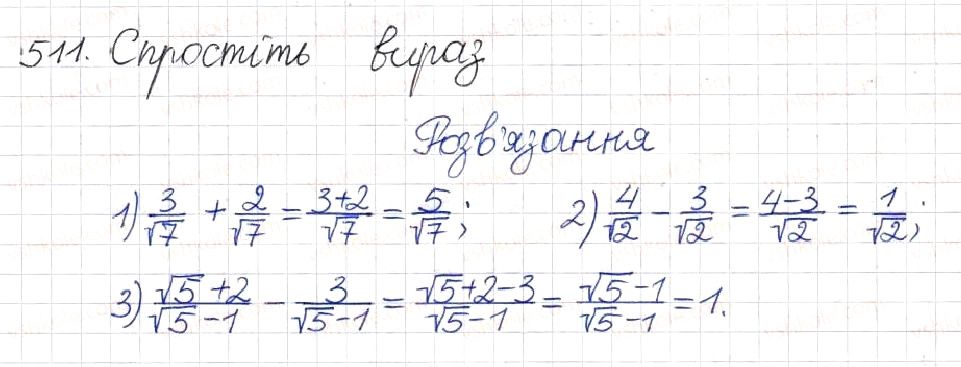 511. Спростіть вираз
Розв'язання
1) 3/√7 + 2/√7 = (3+2)/√7 = 5/√7; 2) 4/√2 − 3/√2 = (4−3)/√2 = 1/√2;
3) (√5+2)/(√5−1) − 3/(√5−1) = (√5+2−3)/(√5−1) = (√5−1)/(√5−1) = 1.